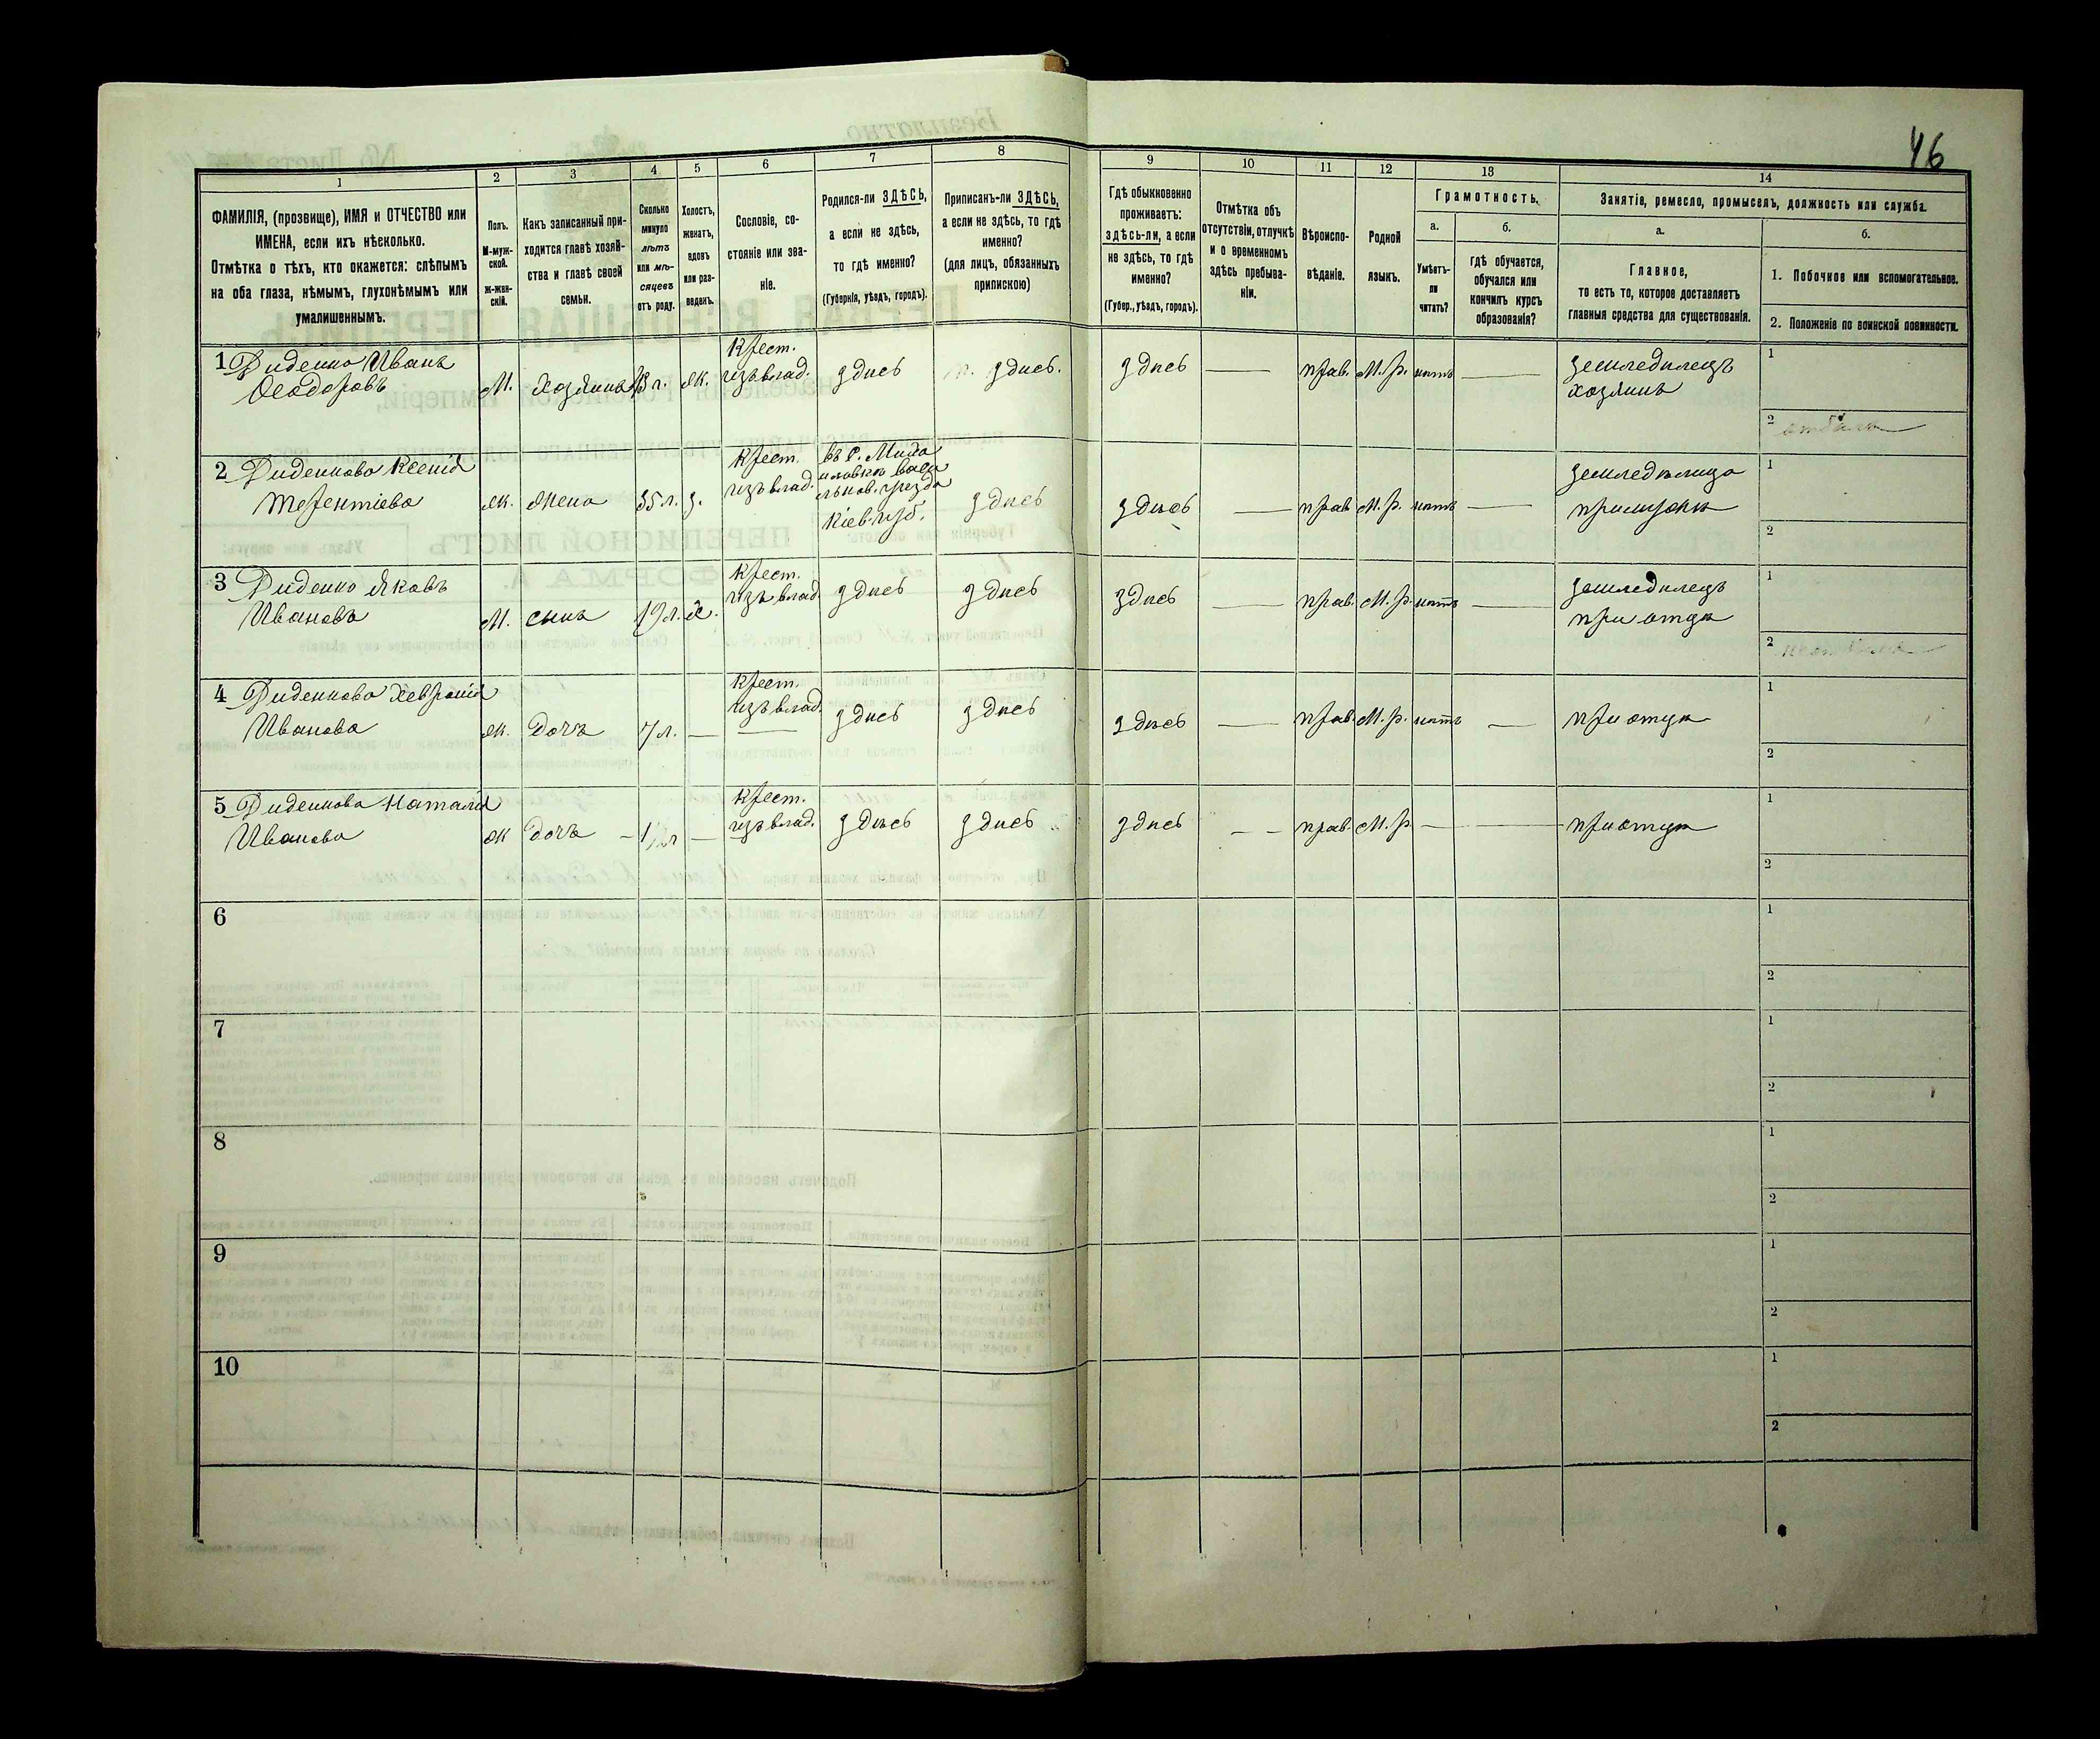 46
1
2
3
4
5
6
7
8
9
10
11
12
13
14
ФАМИЛІЯ, (прозвище), ИМЯ и ОТЧЕСТВО или
ИМЕНА, если ихъ нѣсколько.
Отмѣтка о тѣхъ, кто окажется: слѣпымъ
на оба глаза, нѣмымъ, глухонѣмымъ или
умалишеннымъ.
Полъ.
М-муж-
ской.
Ж-жен-
скій.
Какъ записанный при-
ходится главѣ хозяй-
ства и главѣ своей
семьи.
Сколько
минуло
лѣтъ
или мѣ-
сяцевъ
отъ роду.
Холостъ,
женатъ,
вдовъ
или раз-
веденъ.
Сословіе, со-
стояніе или зва-
ніе.
Родился-ли ЗДѢСЬ,
а если не здѣсь,
то гдѣ именно?
(Губернія, уѣздъ, городъ).
Приписанъ-ли ЗДѢСЬ,
а если не здѣсь, то гдѣ
именно?
(для лицъ, обязанныхъ
припискою)
Гдѣ обыкновенно
проживаетъ:
здѣсь-ли, а если
не здѣсь, то гдѣ
именно?
(Губер., уѣздъ, городъ).
Отмѣтка объ
отсутствіи, отлучкѣ
и о временномъ
здѣсь пребыва-
ніи.
Вѣроиспо-
вѣданіе.
Родной
языкъ.
Грамотность.
а.
Умѣетъ-
ли
читать?
б.
гдѣ обучается,
обучался или
кончилъ курсъ
образованія?
Занятіе, ремесло, промыселъ, должность или служба.
а.
Главное,
то есть то, которое доставляетъ
главныя средства для существованія.
б.
1. Побочное или вспомогательное.
2. Положеніе по воинской повинности.
1 Диденко Иванъ
Феодоровъ
М.
Хозяинъ
ж.
Крест.
изъ влад.
здѣсь
здѣсь.
здѣсь
прав.
М. р.
нѣтъ
земледѣлецъ
хозяинъ
1
2
2 Диденкова Ксенія
Терентіева
ж.
жена
35 л.
з.
Крест.
изъ влад.
Кіев. губ.
здѣсь
здѣсь
прав.
М. р.
нѣтъ
земледѣлица
при мужѣ
1
2
3 Диденко Яковъ
Ивановъ
М.
сынъ
19 л.
х.
Крест.
изъ влад.
здѣсь
здѣсь
здѣсь
прав.
М. р.
нѣтъ
земледѣлецъ
при отцѣ
1
2
4 Диденкова Хевронія
Иванова
ж.
дочь
7 л.
Крест.
изъ влад.
здѣсь
здѣсь
здѣсь
прав.
М. р.
нѣтъ
при отцѣ
1
2
5 Диденкова Наталія
Иванова
ж
дочь
Крест.
изъ влад.
здѣсь
здѣсь
здѣсь
прав.
М. р.
при отцѣ
1
2
6
1
2
7
1
2
8
1
2
9
1
2
10
1
2